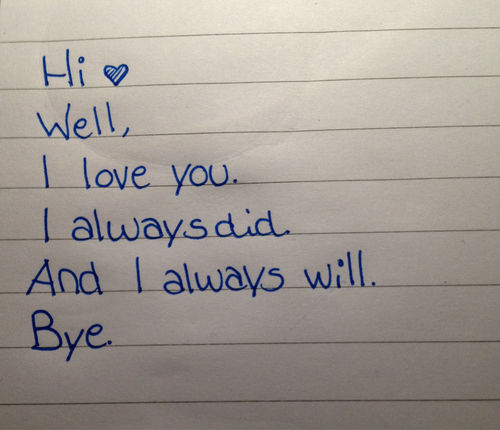 Hi ♥
Well,
I love you.
I always did.
And I always will.
Bye.